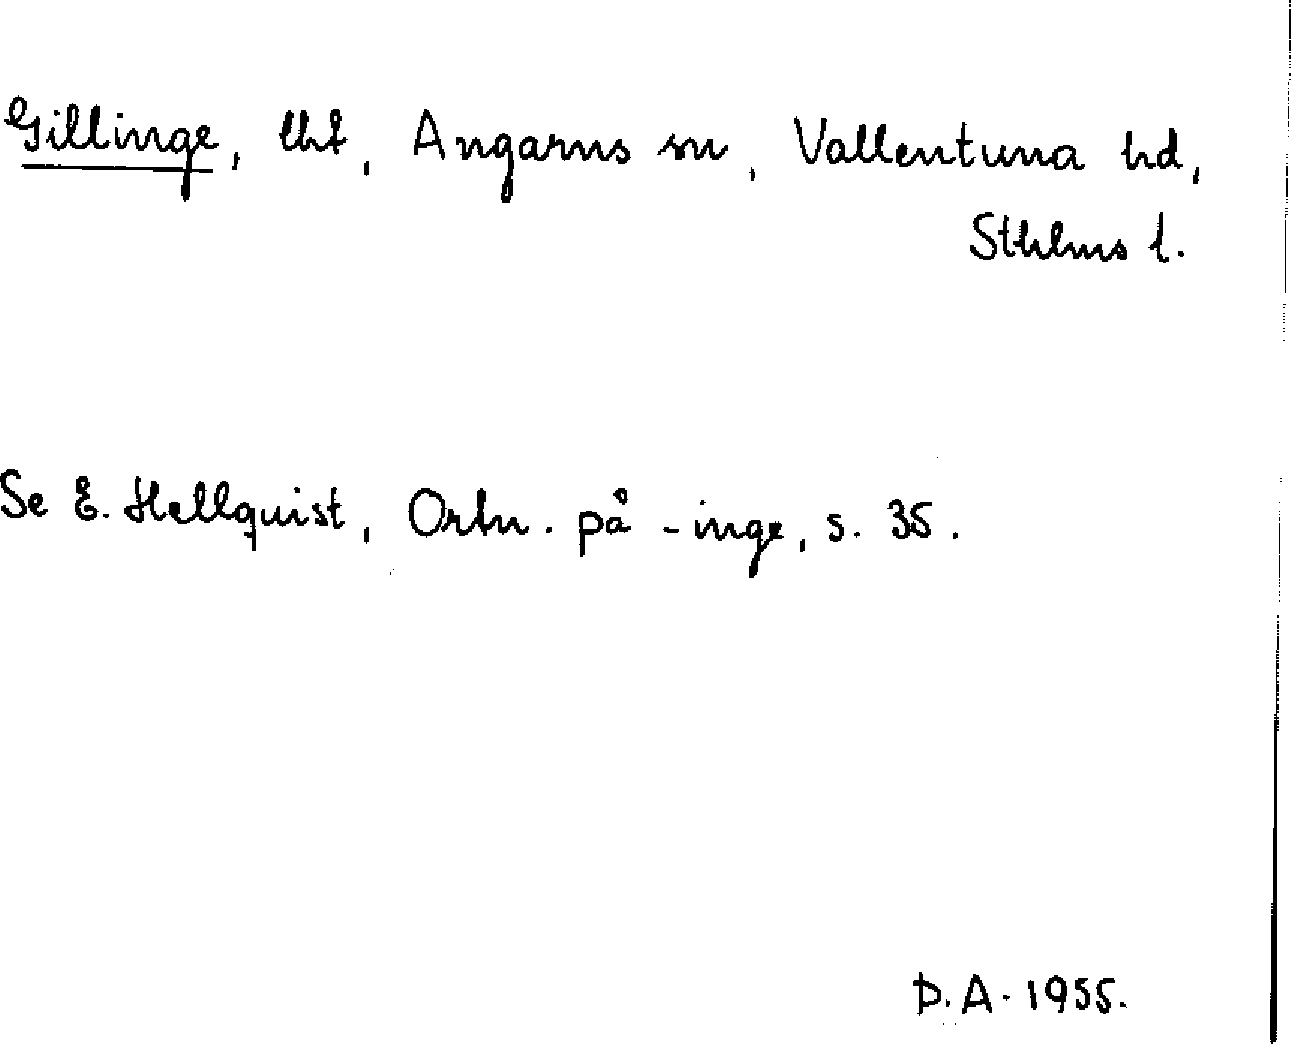 Gillinge, lht, Angarns sn, Vallentuna hd,
Sthlms l.
Se E. Hellquist, Ortn. på -inge, s. 35.
D.A. 1955.